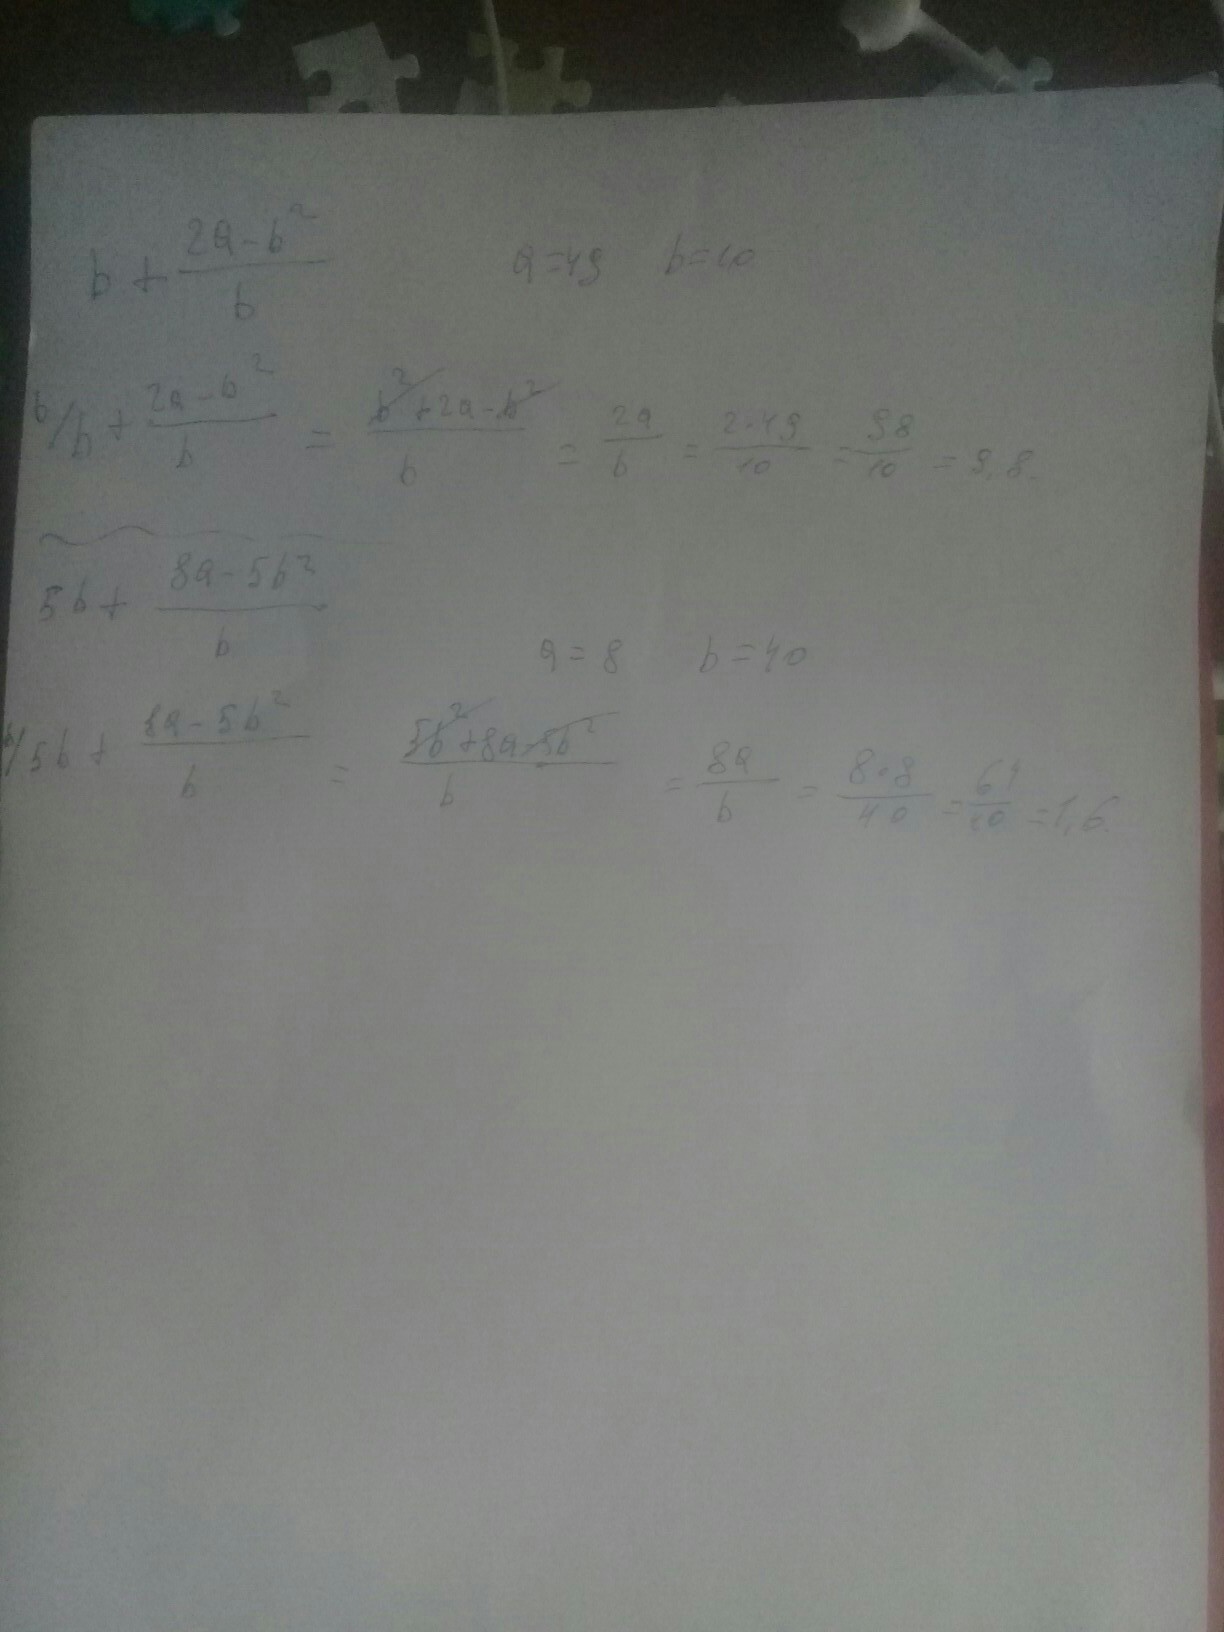 b + (2a - b²)/b a=49 b=10
b/ b + (2a - b²)/b = (b² + 2a - b²)/b = 2a/b = 2·49/10 = 98/10 = 9,8.
5b + (8a - 5b²)/b
a = 8 b = 40
b/ 5b + (8a - 5b²)/b = (5b² + 8a - 5b²)/b = 8a/b = 8·8/40 = 64/40 = 1,6.